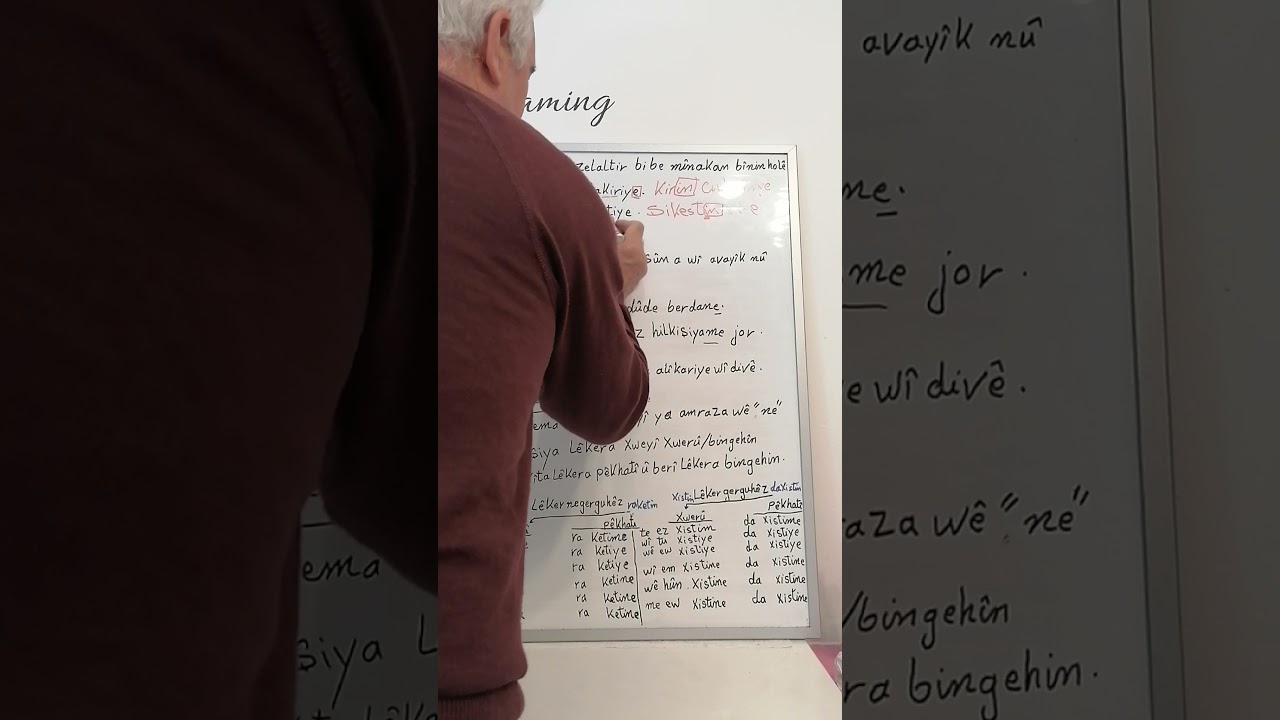 aming
zelaltir bibe mînakan bînin holê
akiriye. Kirin
tiye. Sikestin e
sûn a wî avayîk nû
dûde berdane.
z hilkisiyame jor.
alîkariye wî divê.
ema yî ya amraza wê "ne"
siya Lêkera Xweyî Xwerû/bingehîn
ita Lêkera pêkhatî û berî Lêkera bingehin.
Lêker negerguhêz raketin xistin Lêker gerguhêz daxistin
pêkhatî Xwerû pêkhatî
ra ketime te ez xistim da xistime
ra ketiye wî tu xistiye da xistiye
ra ketiye wê ew xistiye da xistiye
ra ketine wî em xistine da xistine
ra ketine wê hûn xistine da xistine
ra ketine me ew xistine da xistine
avayîk nû
ne.
me jor.
e wî divê.
aza wê "ne"
/bingehîn
ra bingehin.
ema
siya L